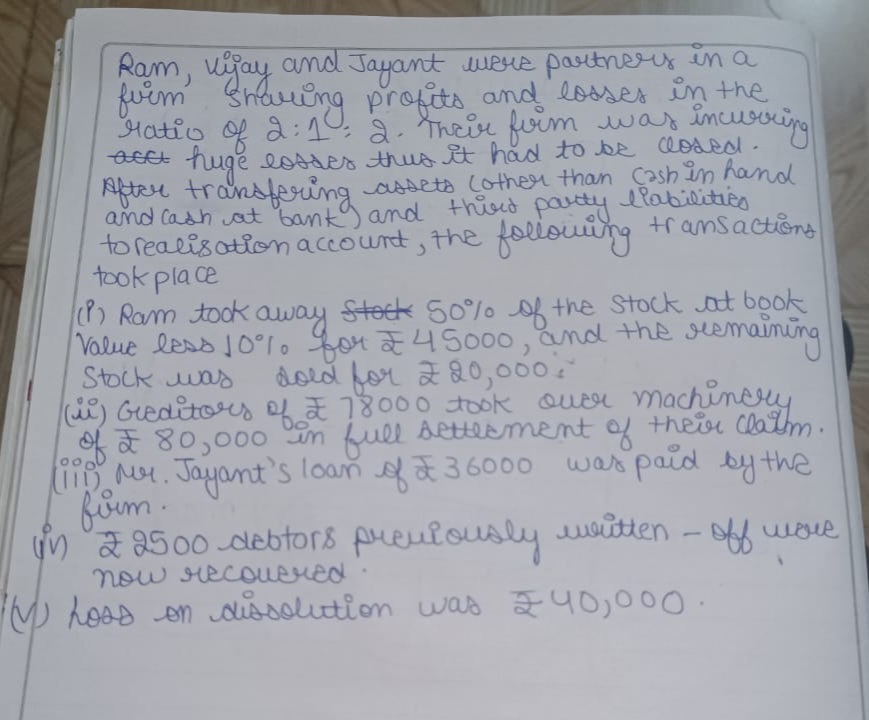 Ram, Vijay and Jayant were partners in a
firm sharing profits and losses in the
ratio of 2:1:2. Their firm was incurring
acct huge losses thus it had to be closed.
After transfering assets (other than cash in hand
and cash at bank) and third party liabilities
to realisation account, the following transactions
took place
(i) Ram took away stock 50% of the stock at book
Value less 10% for ₹ 45000, and the remaining
Stock was sold for ₹ 20,000.
(ii) Creditors of ₹ 78000 took over machinery
of ₹ 80,000 in full settlement of their claim.
(iii) Mr. Jayant's loan of ₹ 36000 was paid by the
firm.
(iv) ₹ 2500 debtors previously written - off were
now recovered.
(v) Loss on dissolution was ₹ 40,000.